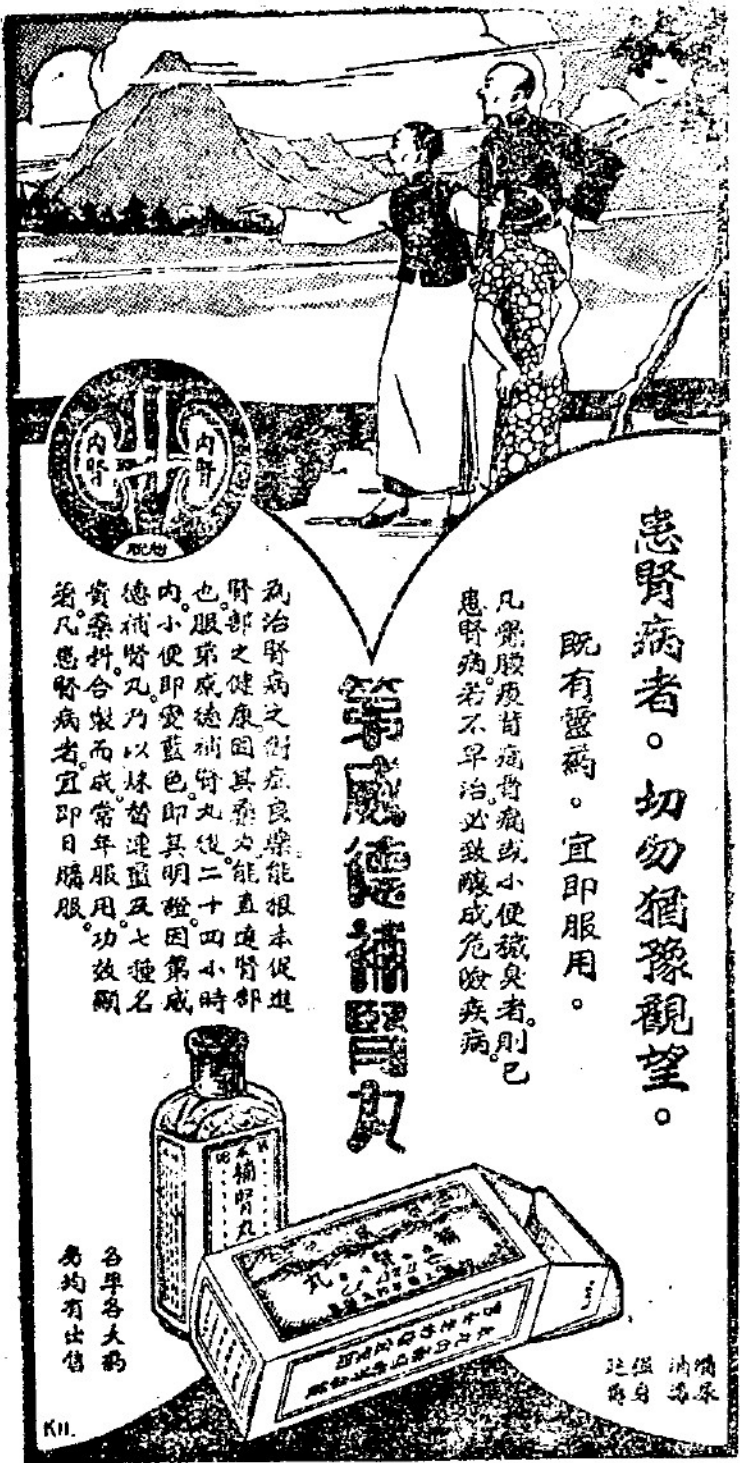 患腎病者。切勿猶豫觀望。
既有靈藥。宜即服用。
凡覺腰痠背痛骨痛或小便穢臭者。則已
患腎病。若不早治。必致釀成危險疾病。
第威德補腎丸
為治腎病之對症良藥。能根本促進
腎部之健康。因其藥力能直達腎部
也。服第威德補腎丸後。二十四小時
內。小便即變藍色。即其明證。因第威
德補腎丸。乃以妹替連藍及七種名
貴藥料合製而成。常年服用。功效顯
著。凡患腎病者。宜即日購服。
內腎
內腎
膀胱
補腎丸
各埠各大藥
房均有出售
K11.